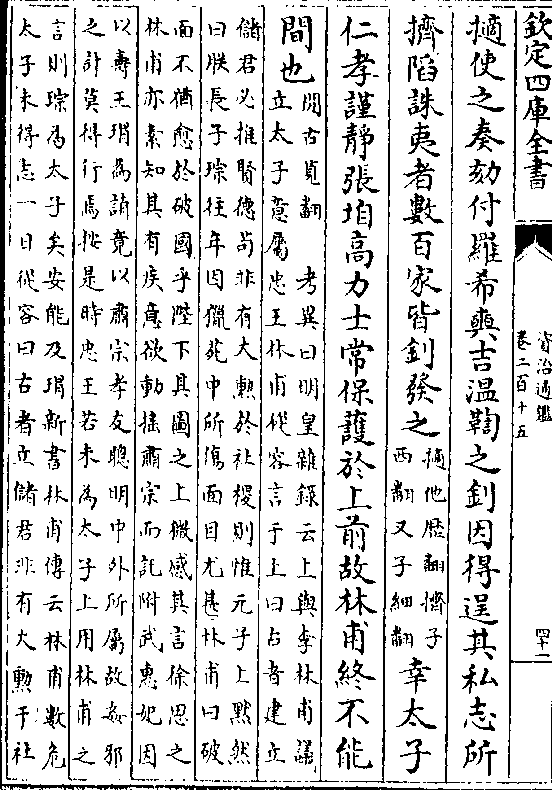 欽定四庫全書
資治通鑑
卷二百十五
四十一
擿使之奏劾付羅希奭吉溫鞫之釗因得逞其私志所
擠陷誅夷者數百家皆釗發之擿他歷翻擠子
西翻又子細翻幸太子
仁孝謹靜張垍高力士常保護於上前故林甫終不能
間也間古莧翻考異曰明皇雜錄云上與李林甫議
立太子意屬忠王林甫從容言于上曰古者建立
儲君必推賢德苟非有大勲於社稷則惟元子上黙然
曰朕長子琮往年因獵苑中所傷面目尤甚林甫曰破
面不猶愈於破國乎陛下其圖之上微感其言徐思之
林甫亦素知其有疾意欲動揺肅宗而託附武惠妃因
以壽王瑁為請竟以肅宗孝友聰明中外所屬故姦邪
之計莫得行焉按是時忠王若未為太子上用林甫之
言則琮為太子矣安能及瑁新書林甫傳云林甫數危
太子未得志一日從容曰古者立儲君非有大勲于社